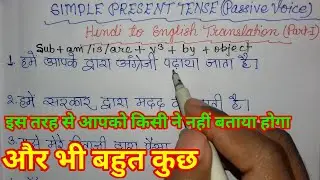 SIMPLE PRESENT TENSE (Passive Voice)
Hindi to English Translation (Part-I)
Sub + am/is/are + V³ + by + object
1. हमें आपके द्वारा अंग्रेजी पढ़ाया जाता है।
2. हमें सरकार द्वारा मदद है।
इस तरह से आपको किसी ने नहीं बताया होगा
और भी बहुत कुछ